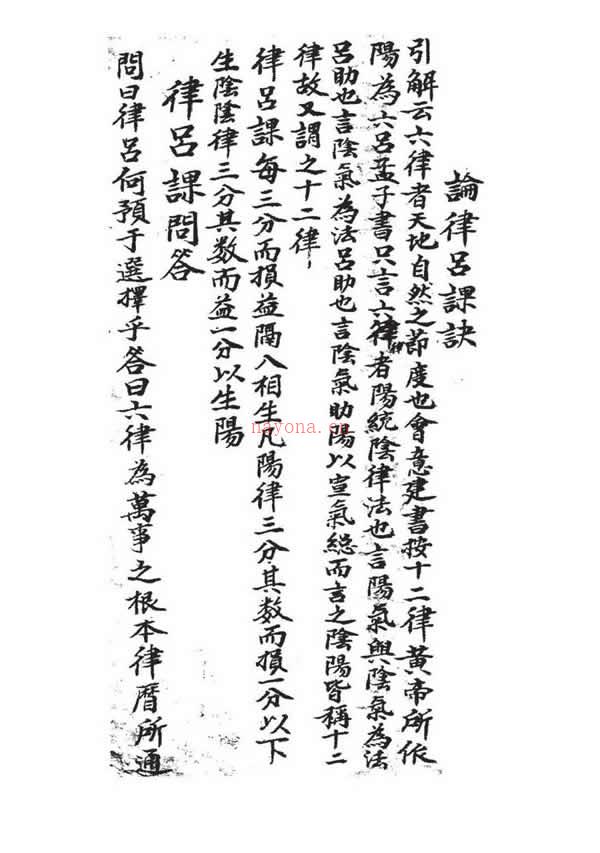 論律呂課訣
引解云六律者天地自然之節度也會意建書按十二律黃帝所作
陽為六呂孟子書只言六律者陽統陰律法也言陽氣與陰氣為法
呂助也言陰氣為法呂助也言陰氣助陽以宣氣總而言之陰陽皆稱十二
律故又謂之十二律
律呂課每三分而損益隔八相生凡陽律三分其数而損一分以下
生陰陰律三分其数而益一分以生陽
律呂課問答
問曰律呂何預于選擇乎答曰六律為萬事之根本律暦所通
nayona.cn